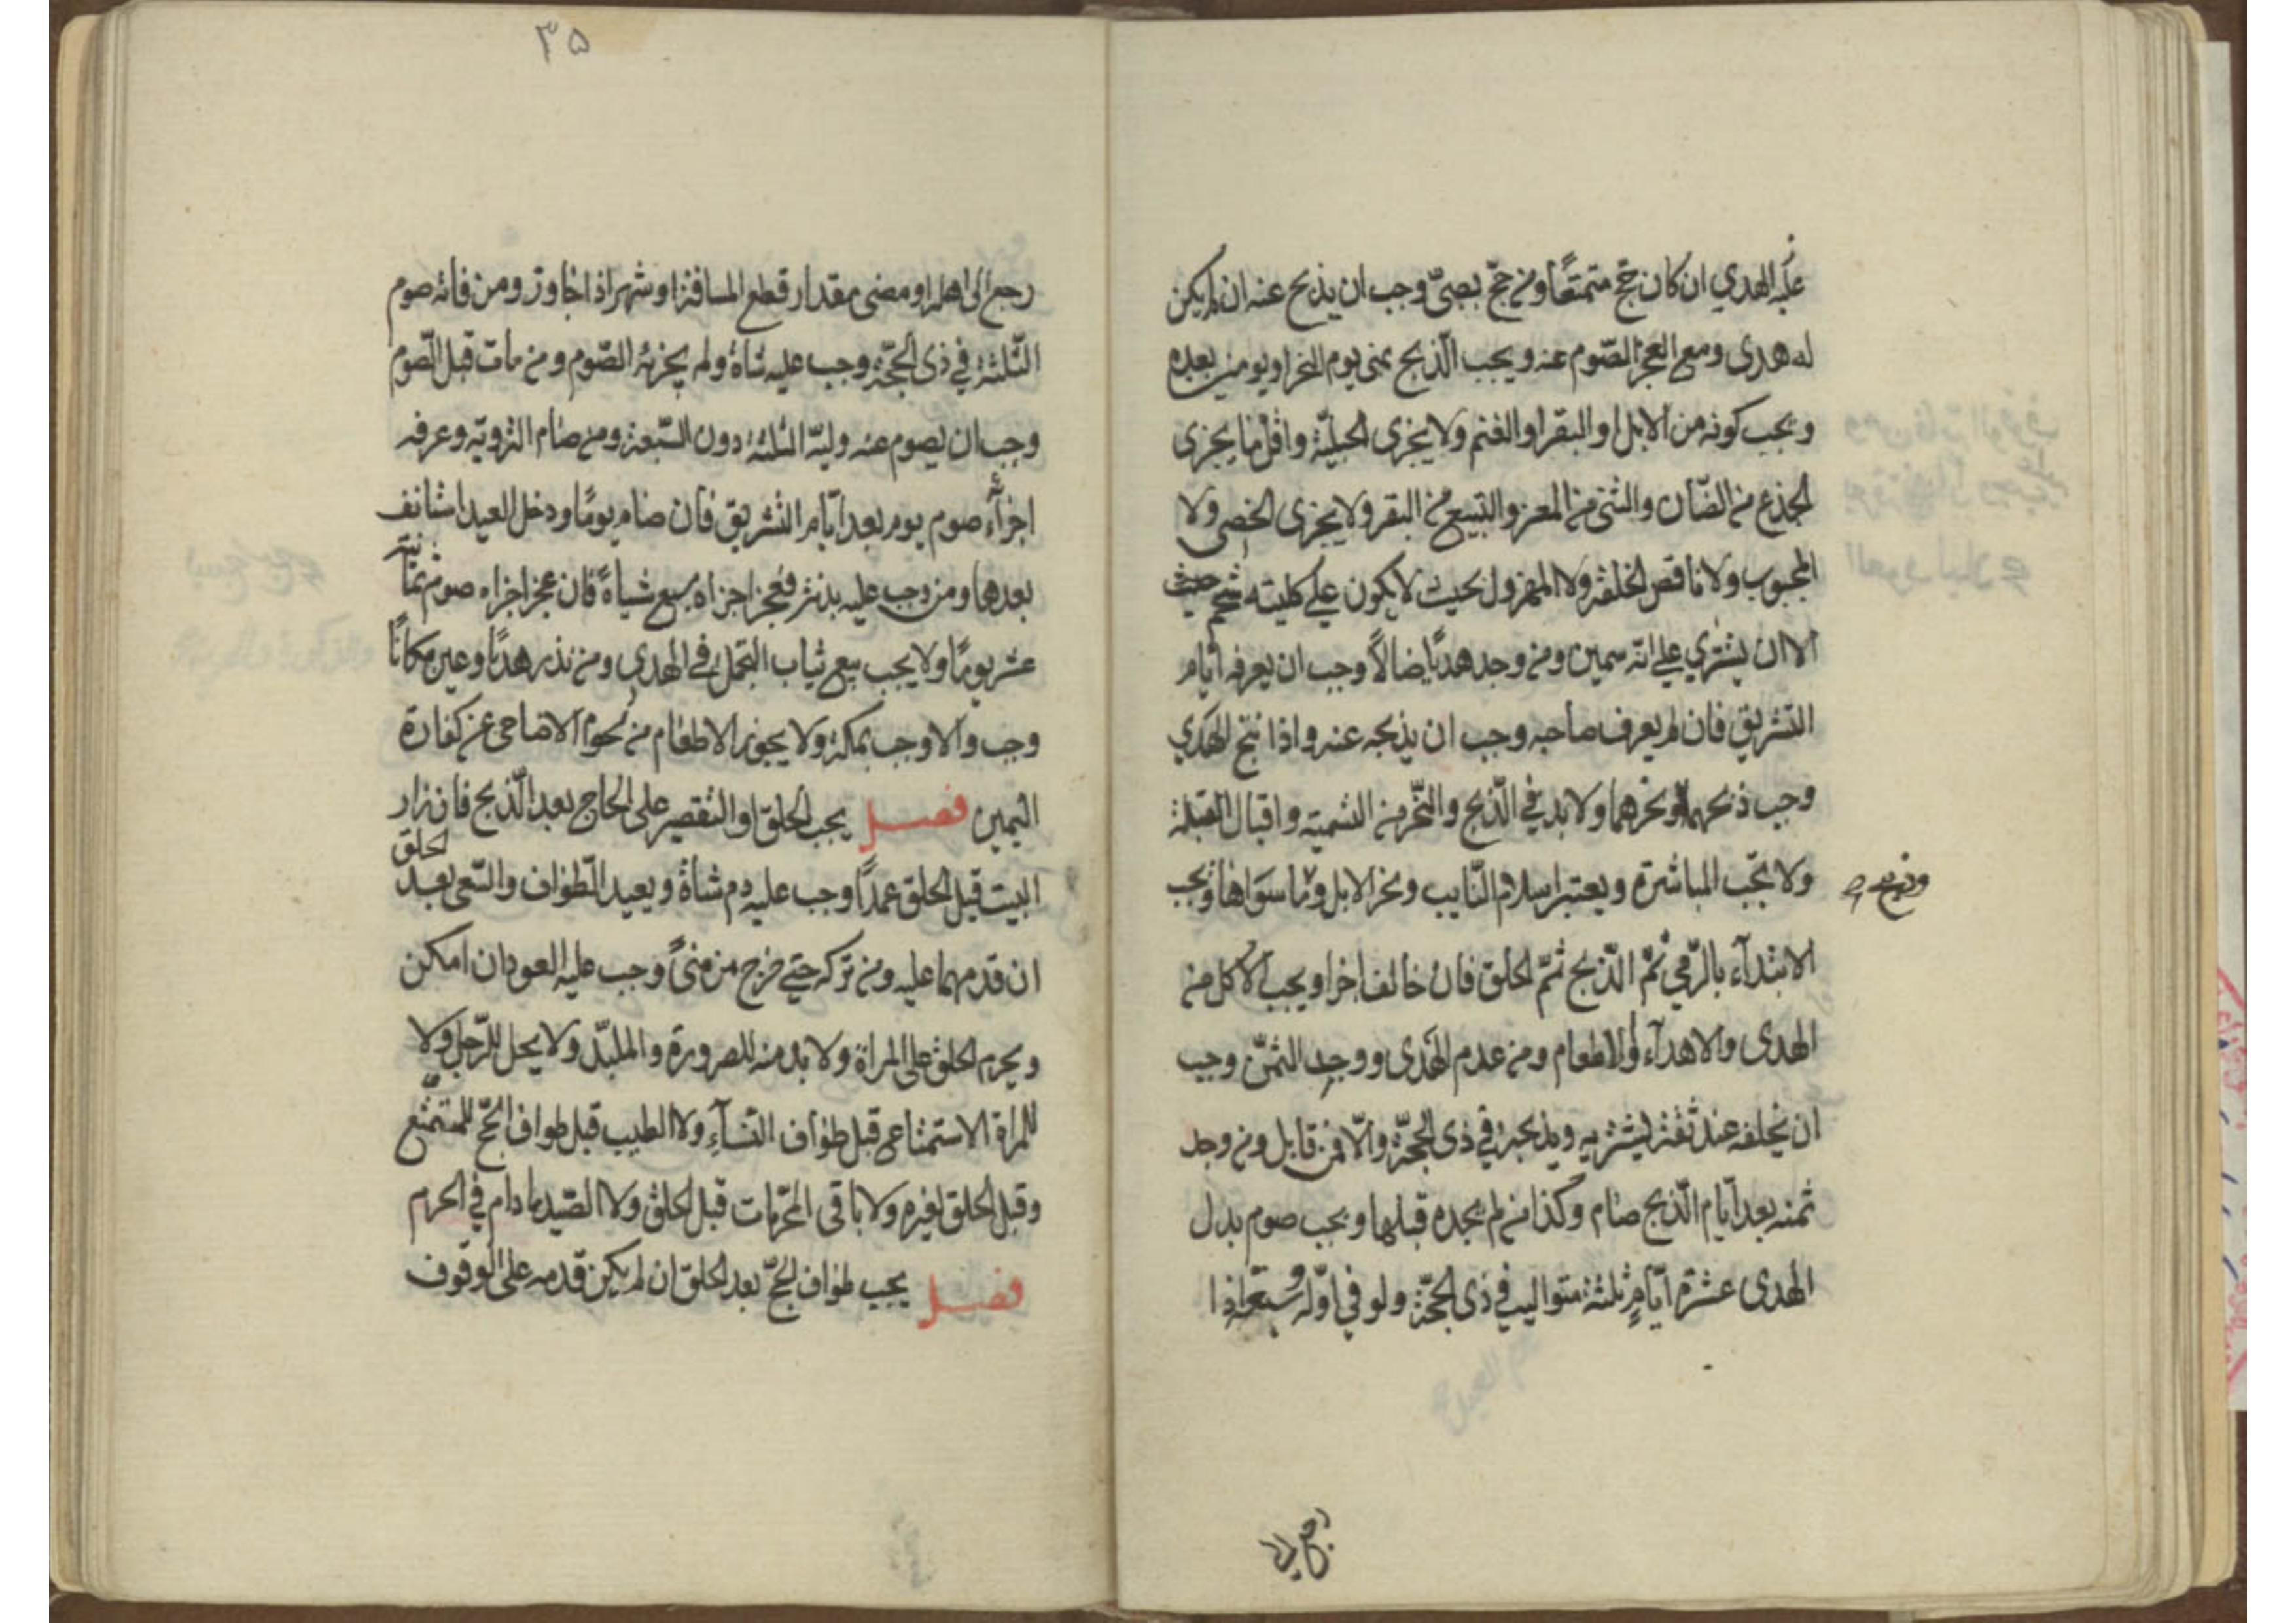 عليه الهدي ان كان حج متمتعًا ومن حجّ بصبىّ وجب ان يذبح عنه ان لم يكن
له هدى ومع العجز الصّوم عنه ويجب الذّبح بمنى يوم النحر او يومين بعده
ويجب كونه من الابل او البقر او الغنم ولا يجزى الجبليّة واقل ما يجزى
الجذع من الضّان والثنى من المعز والتبيع من البقر ولا يجزى الخصى ولا
المجبوب ولا ناقص الخلقة ولا المهزول بحيث لا يكون على كليته شحم
الا ان يشترى على انّه سمين ومن وجد هديًا ضالًا وجب ان يعرفه ايّام
التشريق فان لم يعرف صاحبه وجب ان يذبحه عنه واذا نتج الهدي
وجب ذبحهما او نحرهما ولا بد في الذّبح والنّحر من التسمية واقبال القبلة
ولا تجب المباشرة ويعتبر اسلام النّايب ونحر الابل وما سواها ويجب
وذبح صح
الابتدآء بالرّمي ثمّ الذّبح ثمّ الحلق فان خالف اجزا ويجب الاكل من
الهدى والاهدآء والاطعام ومن عدم الهدى ووجد الثمنّ وجب
ان يخلفه عند ثقة ليشتريه ويذبحه في ذى الحجّة والّا فمن قابل ومن وجد
ثمنه بعد ايّام الذّبح صام وكذا من لم يجده قبلها ويجب صوم بدل
الهدى عشرة ايّامٍ ثلثة متواليه في ذى الحجّة ولو في اوّله وسبعة اذا
رجع الى
٣٥
رجع الى اهله او مضى مقدار قطع المسافة او شهر اذا جاور ومن فاته صوم
الثّلثة في ذى الحجّة وجب عليه شاة ولم يجزه الصّوم ومن مات قبل الصّوم
وجب ان يصوم عنه وليّه الثلثة دون السّبعة ومن صام التروية وعرفه
اجزأه صوم يوم بعد ايّام التشريق فان صام يومًا ودخل العيد استانف
بعدها ومن وجب عليه بدنة فعجز اجزاه سبع شياة فان عجز اجزاه صوم ثمانية
عشر يومًا ولا يجب بيع ثياب التجمل في الهدى ومن نذر هديًا وعين مكانًا
وجب والا وجب بمكة ولا يجوز الاطعام من لحوم الاضاحى عن كفارة
اليمين فصل يجب الحلق او التقصير على الحاج بعد الذّبح فان زار
البيت قبل الحلق عمدًا وجب عليه دم شاة ويعيد الطواف والسّعى بعد الحلق
ان قدمهما عليه ومن تركه حتى خرج من منىً وجب عليه العود ان امكن
ويحرم الحلق على المراة ولا بد منه للصرورة والملبّد ولا يحل للرّجل ولا
للمراة الاستمتاع قبل طواف النسآء ولا الطيب قبل طواف الحّج للمتمتّع
وقبل الحلق لغيره ولا باقى المحرّمات قبل الحلق ولا الصّيد ما دام في الحرم
فصل يجب طواف الحجّ بعد الحلق ان لم يكن قدمه على الوقوف